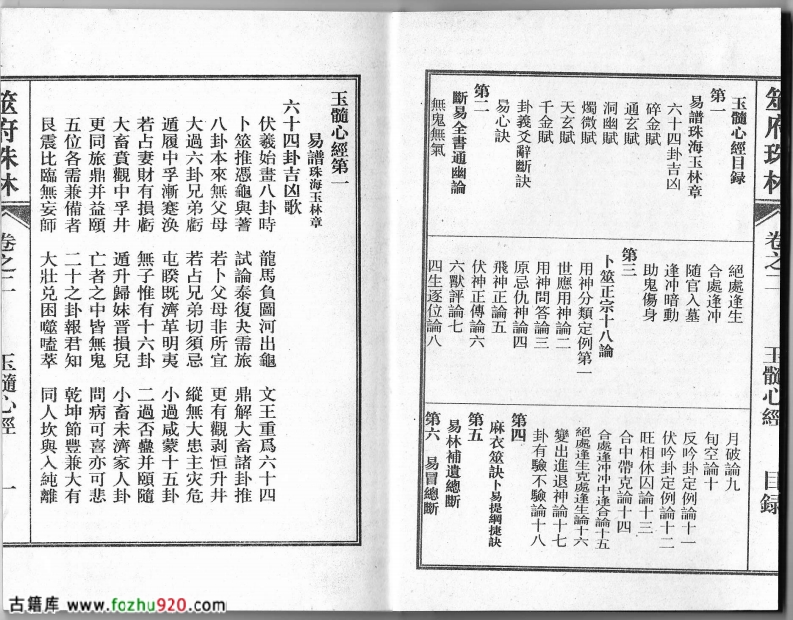 筮府珠林
卷之二
玉髓心經
目録
玉髓心經目録
第一
易譜珠海玉林章
六十四卦吉凶
碎金賦
通玄賦
洞幽賦
燭微賦
天玄賦
千金賦
卦義爻辭斷訣
易心訣
第二
斷易全書通幽論
無鬼無氣
絕處逢生
合處逢冲
隨官入墓
逢冲暗動
助鬼傷身
第三
卜筮正宗十八論
用神分類定例第一
世應用神論二
用神問答論三
原忌仇神論四
飛神正論五
伏神正傳論六
六獸評論七
四生逐位論八
月破論九
旬空論十
反吟卦定例論十一
伏吟卦定例論十二
旺相休囚論十三
合中帶克論十四
合處逢冲冲中逢合論十五
絕處逢生克處逢生論十六
變出進退神論十七
卦有驗不驗論十八
第四
麻衣筮訣卜易提綱捷訣
第五
易林補遺總斷
第六 易冒總斷
玉髓心經第一
易譜珠海玉林章
六十四卦吉凶歌
伏羲始畫八卦時 龍馬負圖河出龜 文王重爲六十四
卜筮推憑龜與蓍 試論泰復夬需旅 鼎解大畜諸卦推
八卦本來無父母 若卜父母非所宜 更有觀剥恒升井
大過六卦兄弟虧 若占兄弟切須忌 縱無大患主灾危
遁履中孚漸蹇渙 屯睽既濟革明夷 小過咸蒙十五卦
若占妻財有損虧 無子惟有十六卦 二過否蠱并頤隨
大畜賁觀中孚井 遁升歸妹晋損兒 小畜未濟家人卦
更同旅鼎并益頤 亡者之中皆無鬼 問病可喜亦可悲
五位各需兼備者 二十之卦報君知 乾坤節豐兼大有
艮震比臨無妄師 大壯兑困噬嗑萃 同人坎與入純離
筮府珠林
卷之二
玉髓心經
一
古籍库 www.fozhu920.com